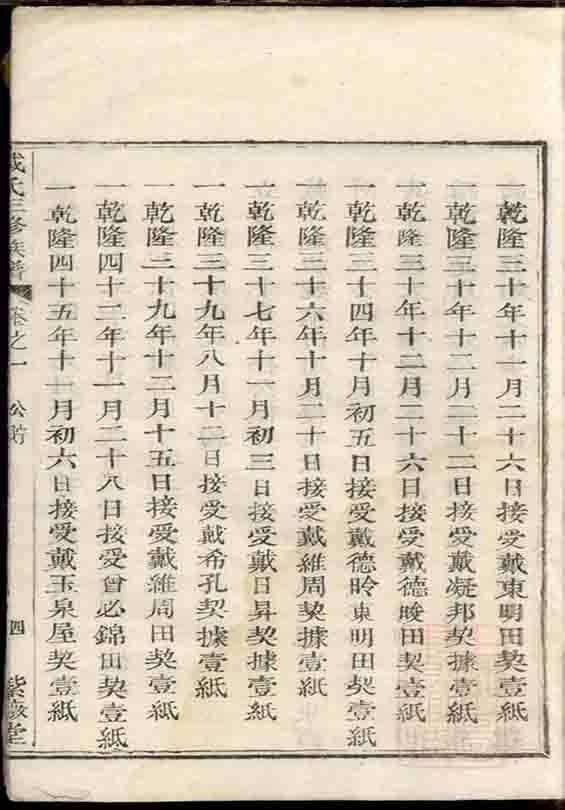 一乾隆三十年十一月二十六日接受戴東明田契壹紙
一乾隆三十年十二月二十二日接受戴凝邦契據壹紙
一乾隆三十年十二月二十六日接受戴德畯田契壹紙
一乾隆三十四年十月初五日接受戴德昤東明田契壹紙
一乾隆三十六年十月二十日接受戴維周契據壹紙
一乾隆三十七年十一月初三日接受戴日昇契據壹紙
一乾隆三十九年八月十二日接受戴希孔契據壹紙
一乾隆三十九年十二月十五日接受戴維周田契壹紙
一乾隆四十二年十一月二十八日接受曾必錦田契壹紙
一乾隆四十五年十一月初六日接受戴玉泉屋契壹紙
氏三修族譜 卷之一 公貯 四 紫 堂